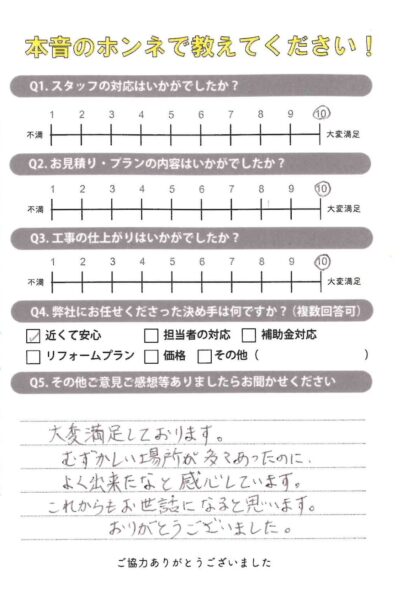 本音のホンネで教えてください！
Q1. スタッフの対応はいかがでしたか？
1 2 3 4 5 6 7 8 9 10
不満 大変満足
Q2. お見積り・プランの内容はいかがでしたか？
1 2 3 4 5 6 7 8 9 10
不満 大変満足
Q3. 工事の仕上がりはいかがでしたか？
1 2 3 4 5 6 7 8 9 10
不満 大変満足
Q4. 弊社にお任せくださった決め手は何ですか？（複数回答可）
近くて安心 担当者の対応 補助金対応
リフォームプラン 価格 その他（ ）
Q5. その他ご意見ご感想等ありましたらお聞かせください
大変満足しております。
むずかしい場所が多くあったのに、
よく出来たなと感心しています。
これからもお世話になると思います。
ありがとうございました。
ご協力ありがとうございました